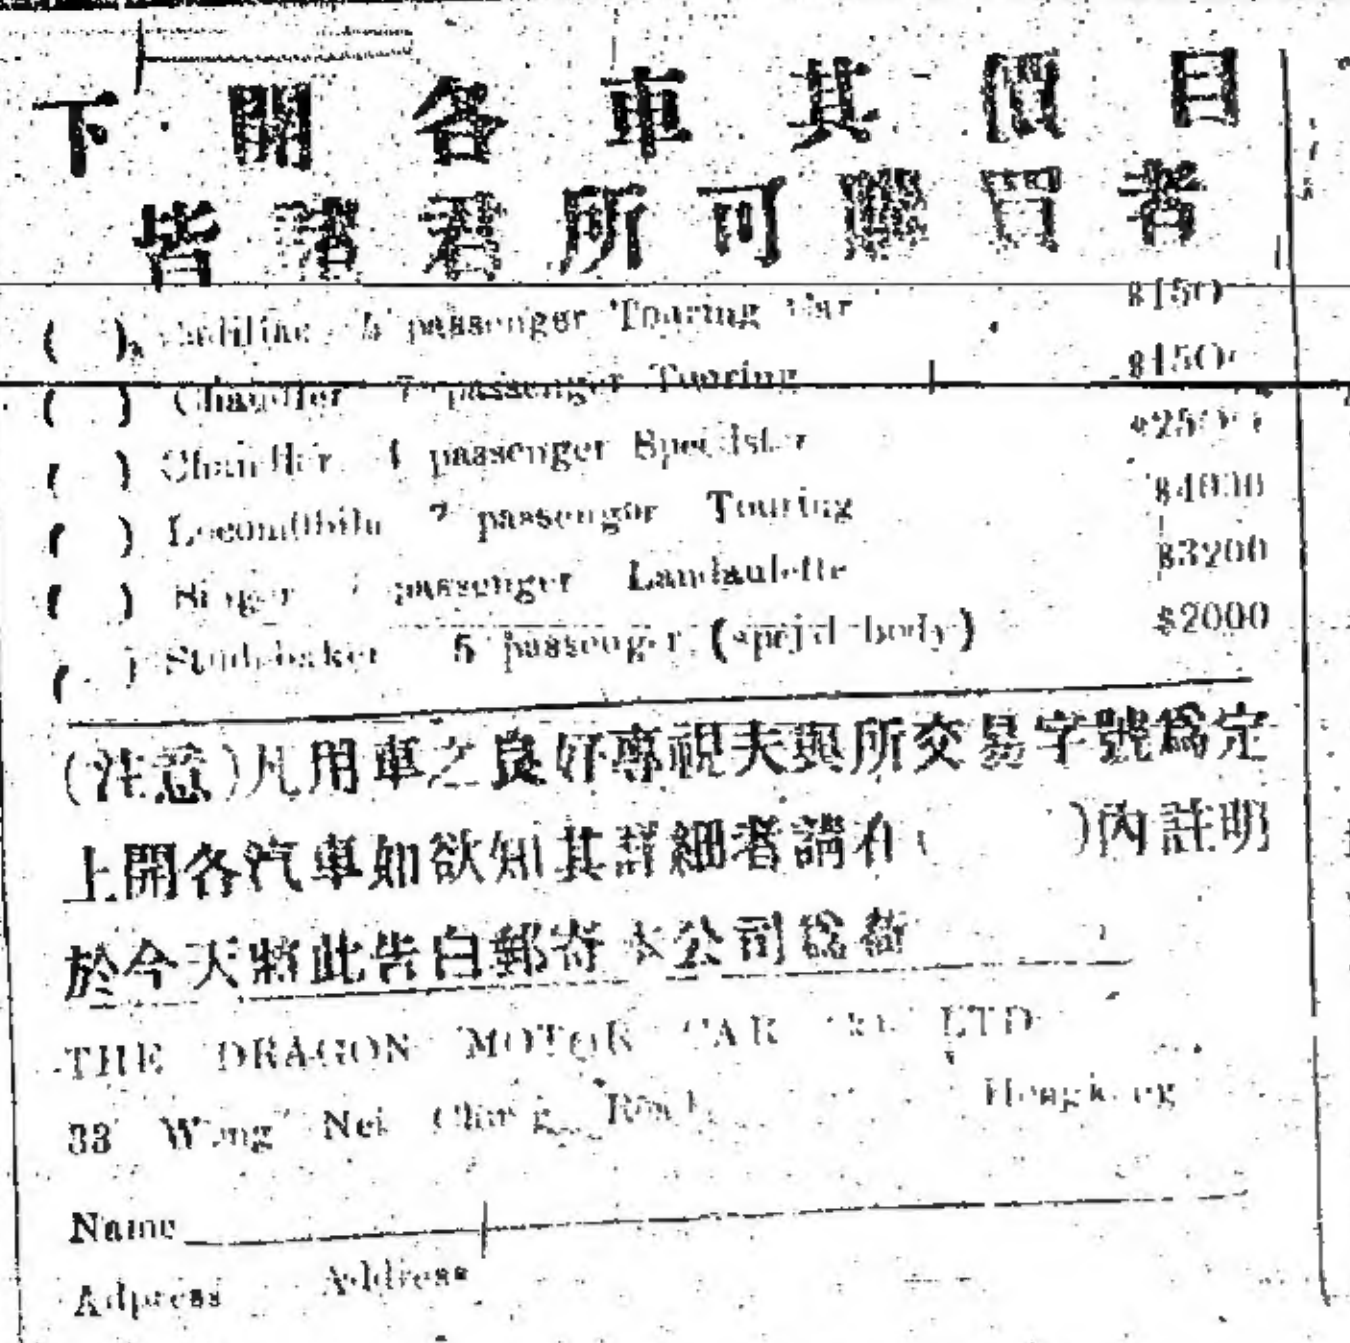 下開各車其價目
皆諸君所可購買者
( ) Cadillac 5 passenger Touring Car $150
( ) Chandler 7 passenger Touring $150
( ) Chandler 4 passenger Speedster $2500
( ) Locomobile 7 passenger Touring $4000
( ) Singer passenger Landaulette $3200
( ) Studebaker 5 passenger (body) $2000
(注意)凡用車之良好專視夫與所交易字號為定
上開各汽車如欲知其詳細者請在( )內註明
於今天將此告白郵寄本公司為荷
THE DRAGON MOTOR CAR CO LTD
33 Wong Nei Chong Road Hongkong
Name
Adpress Address